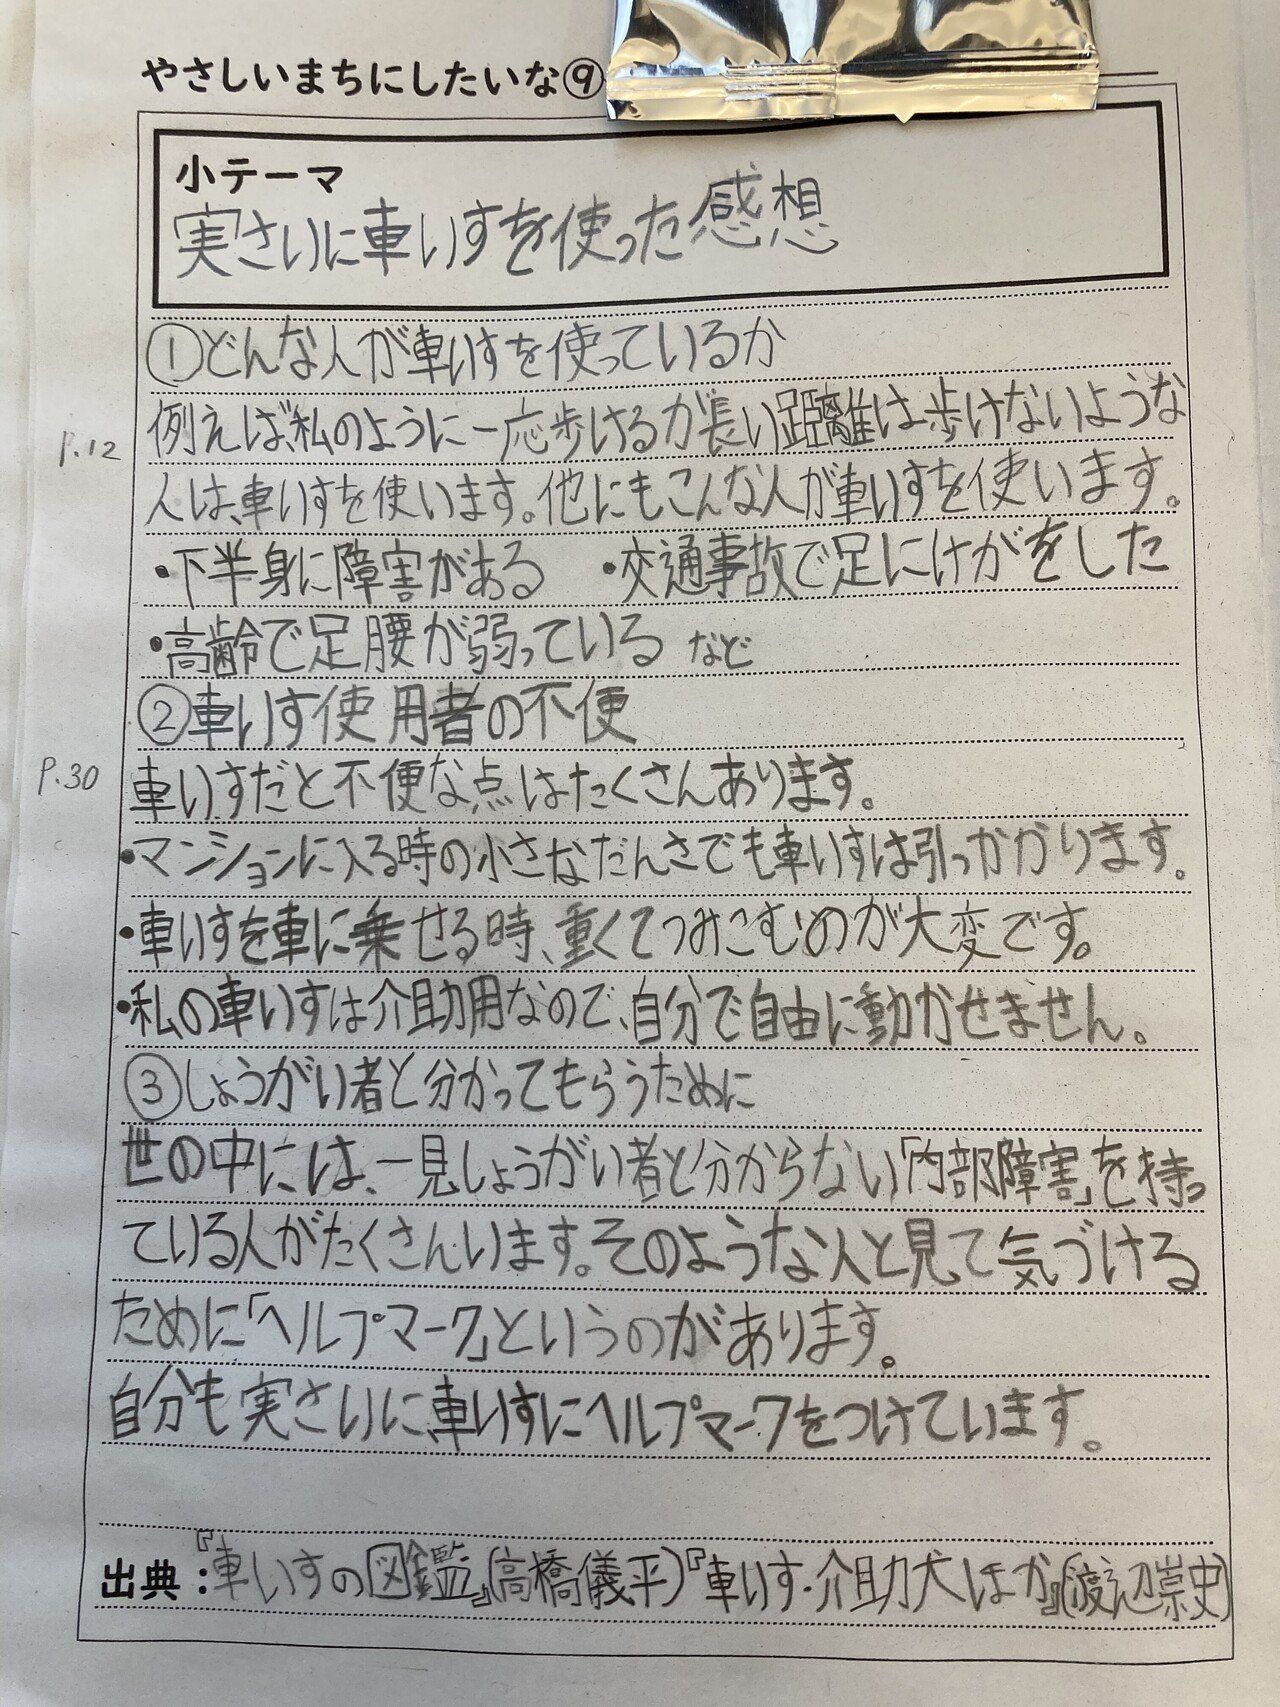 やさしいまちにしたいな⑨
小テーマ
実さいに車いすを使った感想
①どんな人が車いすを使っているか
P.12 例えば、私のように一応歩けるが長い距離は歩けないような
人は、車いすを使います。他にもこんな人が車いすを使います。
・下半身に障害がある ・交通事故で足にけがをした
・高齢で足腰が弱っている など
②車いす使用者の不便
P.30 車いすだと不便な点はたくさんあります。
・マンションに入る時の小さなだんさでも車いすは引っかかります。
・車いすを車に乗せる時、重くてつみこむのが大変です。
・私の車いすは介助用なので、自分で自由に動かせません。
③しょうがい者と分かってもらうために
世の中には、一見しょうがい者と分からない「内部障害」を持っ
ている人がたくさんいます。そのような人と見て気づける
ために「ヘルプマーク」というのがあります。
自分も実さいに、車いすにヘルプマークをつけています。
出典：『車いすの図鑑』(高橋儀平)『車いす・介助犬ほか』(渡辺崇史)